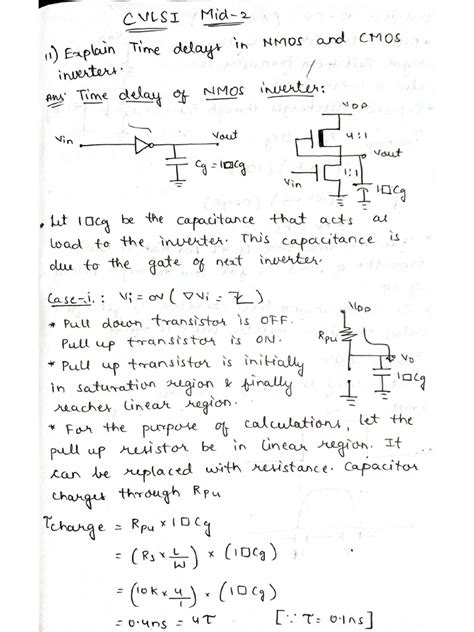 CVLSI Mid-2
11) Explain Time delays in NMOS and CMOS
inverters.
Ans: Time delay of NMOS inverter:
VDD
4:1
Vin
Vout
Cg = 1□Cg
Vout
Vin
1:1
1□Cg
. Let 1□Cg be the capacitance that acts as
load to the inverter. This capacitance is
due to the gate of next inverter.
Case-i.: Vi = 0V
VDD
* Pull down transistor is OFF.
Pull up transistor is ON.
Rpu
* Pull up transistor is initially
V0
in saturation region & finally
1□Cg
reaches linear region.
* For the purpose of calculations, let the
pull up resistor be in linear region. It
can be replaced with resistance. Capacitor
charges through Rpu
τcharge = Rpu × 1□Cg
= (Rs × L/W) × (1□Cg)
= (10K × 4/1) × (1□Cg)
= 0.4ns = 4τ [∵ τ = 0.1ns]